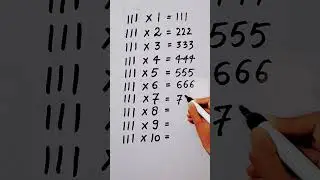 111 × 1 = 111
111 × 2 = 222
111 × 3 = 333
111 × 4 = 444
111 × 5 = 555
111 × 6 = 666
111 × 7 = 7
111 × 8 =
111 × 9 =
111 × 10 =